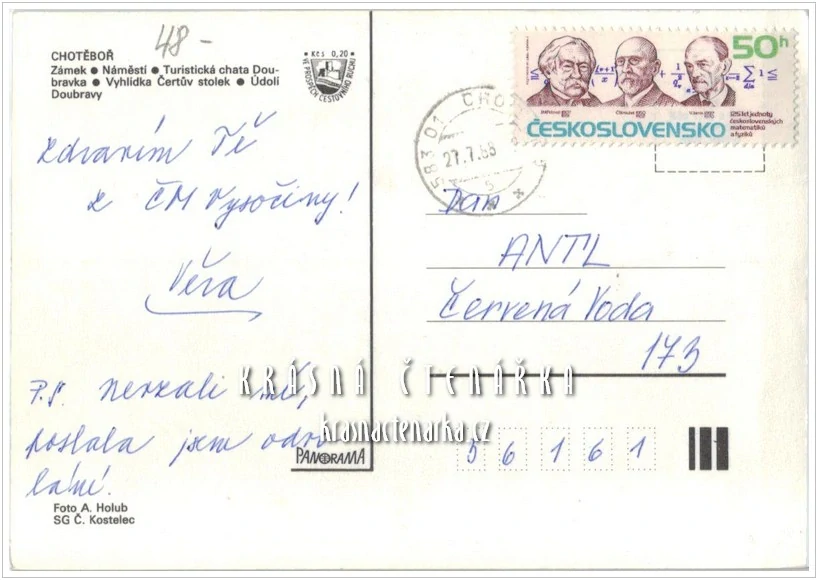 48-
CHOTĚBOŘ
Zámek ● Náměstí ● Turistická chata Dou-
bravka ● Vyhlídka Čertův stolek ● Údolí
Doubravy
Kčs 0,20
VE PROSPĚCH CESTOVNÍHO RUCHU
Zdravím Tě
z ČM Vysočiny!
Věra
P.S. Nevzali mě,
poslala jsem odvo
lání.
PANORAMA
Foto A. Holub
SG Č. Kostelec
50h
ČESKOSLOVENSKO
125 let jednoty
československých
matematiků
a fyziků
583 01 CHO
27.7.88
Pan
ANTL
Červená Voda
173
56161
KRÁSNÁ ČTENÁŘKA
krasnactenarka.cz